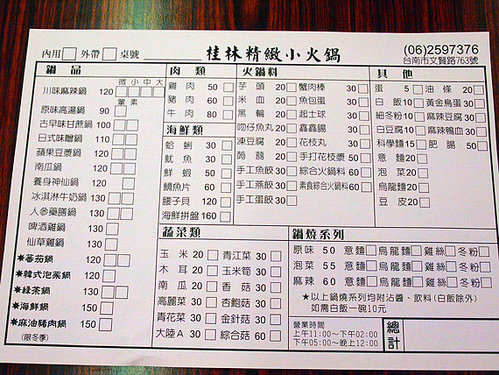 內用 外帶 桌號
桂林精緻小火鍋
(06)2597376
台南市文賢路763號
鍋品
微小中大
川味麻辣鍋 120
葷素
原味高湯鍋 90
古早味甘蔗鍋 100
日式味噌鍋 110
蘋果豆漿鍋 120
南瓜鍋 120
養身神仙鍋 120
冰淇淋牛奶鍋 130
人參藥膳鍋 130
啤酒雞鍋 130
仙草雞鍋 130
★蕃茄鍋 120
★韓式泡菜鍋 120
★綠茶鍋 130
★海鮮鍋 150
★麻油豬肉鍋 150
(限冬季)
肉類
雞肉 50
豬肉 60
牛肉 80
海鮮類
蛤蜊 30
魷魚 30
鮮蝦 50
鯛魚片 60
腰子貝 120
海鮮拼盤 160
火鍋料
芋頭 20 蟹肉棒 30
米血 20 魚包蛋 30
黑輪 20 起士球 30
吻仔魚丸 20 鑫鑫腸 30
凍豆腐 20 花枝丸 30
蒟蒻 20 手打花枝漿 50
手工魚餃 30 綜合火鍋料 60
手工燕餃 30 素食綜合火鍋料 60
手工蛋餃 30
其他
蛋 5 油條 20
白飯 10 黃金魚蛋 30
細冬粉 10 麻辣豆腐 30
白豆腐 10 麻辣鴨血 30
科學麵 15 肥腸 50
意麵 20
泡菜 20
烏龍麵 20
豆皮 20
蔬菜類
玉米 20 青江菜 30
木耳 20 玉米筍 30
南瓜 20 香菇 30
高麗菜 30 杏鮑菇 30
青花菜 30 金針菇 30
大陸A 30 綜合菇 60
鍋燒系列
原味 50 意麵 烏龍麵 雞絲 冬粉
泡菜 55 意麵 烏龍麵 雞絲 冬粉
麻辣 60 意麵 烏龍麵 雞絲 冬粉
★以上鍋燒系列均附沾醬、飲料(白飯除外)
如需白飯一碗10元
營業時間
上午11:00~下午02:00
下午05:00~晚上12:00
總計